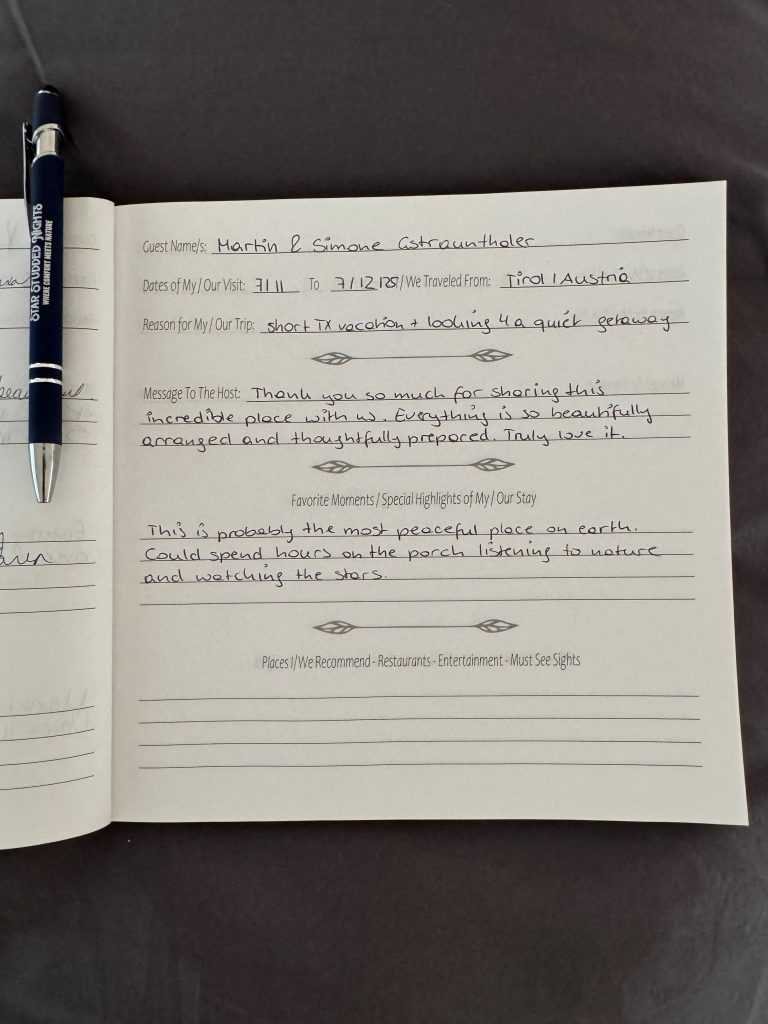 STAR STUDDED NIGHTS
WHERE COMFORT MEETS NATURE
Guest Name/s: Martin & Simone Gstraunthaler
Dates of My/Our Visit: 7/11 To 7/12/25 / We Traveled From: Tirol / Austria
Reason for My/Our Trip: short TX vacation + looking 4 a quiet getaway
Message To The Host: Thank you so much for sharing this
incredible place with us. Everything is so beautifully
arranged and thoughtfully prepared. Truly love it.
Favorite Moments / Special Highlights of My / Our Stay
This is probably the most peaceful place on earth.
Could spend hours on the porch listening to nature
and watching the stars.
Places I/We Recommend - Restaurants - Entertainment - Must See Sights